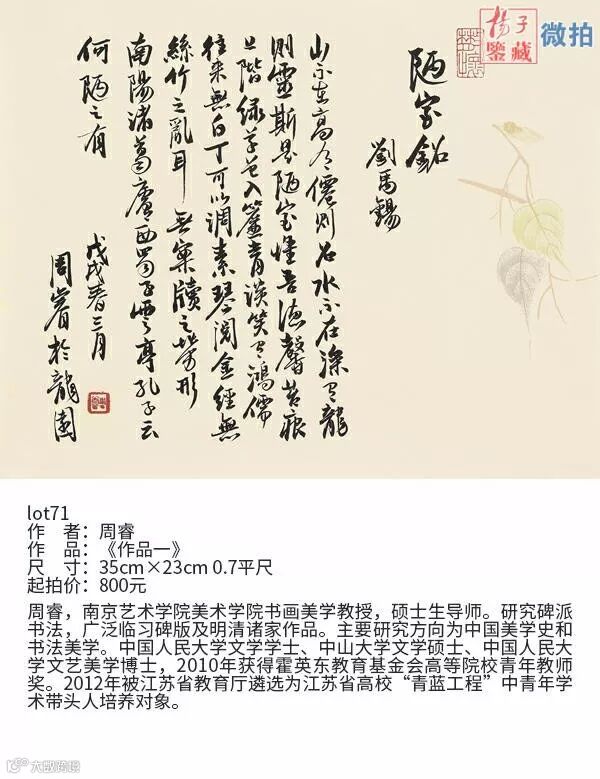 揚子
鑒藏
微拍
陋室銘
劉禹錫
山不在高有僊則名水不在深有龍
則靈斯是陋室惟吾德馨苔痕
上階綠草色入簾青談笑有鴻儒
往來無白丁可以調素琴閱金經無
絲竹之亂耳無案牘之勞形
南陽諸葛廬西蜀子雲亭孔子云
何陋之有
戊戌春三月
周睿於龍園
lot71
作 者：周睿
作 品：《作品一》
尺 寸：35cm×23cm 0.7平尺
起拍价：800元
周睿，南京艺术学院美术学院书画美学教授，硕士生导师。研究碑派
书法，广泛临习碑版及明清诸家作品。主要研究方向为中国美学史和
书法美学。中国人民大学文学学士、中山大学文学硕士、中国人民大
学文艺美学博士，2010年获得霍英东教育基金会高等院校青年教师
奖。2012年被江苏省教育厅遴选为江苏省高校“青蓝工程”中青年学
术带头人培养对象。
大数跨境